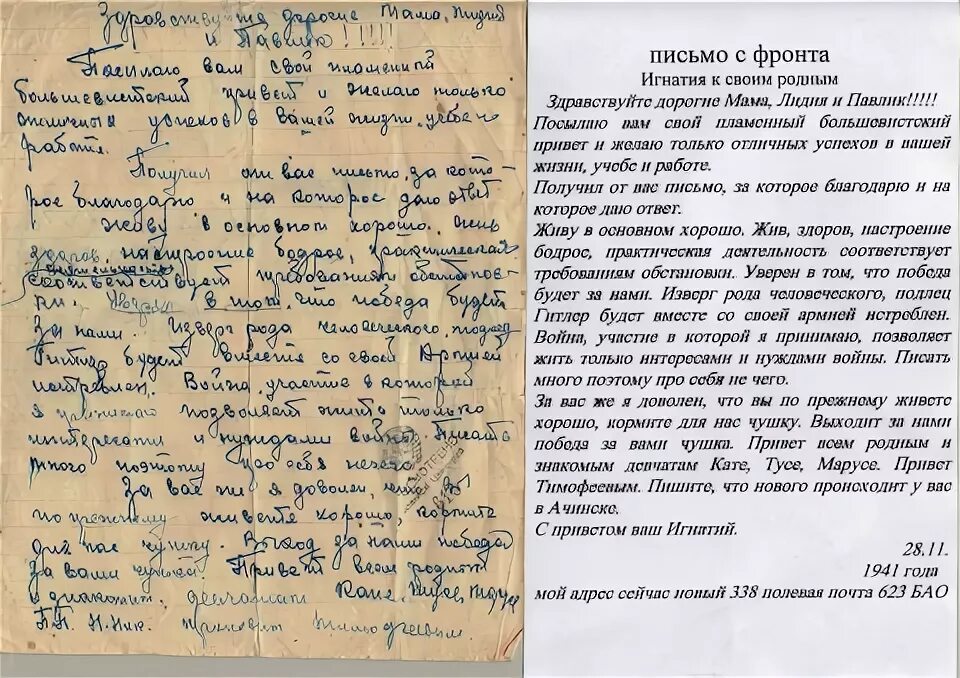 Здравствуйте дорогие Мама, Лидия
и Павлик!!!!!
Посылаю вам свой пламенный
большевистский привет и желаю только
отличных успехов в вашей жизни, учебе и
работе.
Получил от вас письмо, за кото
рое благодарю и на которое даю ответ
Живу в основном хорошо. Жив
здоров, настроение бодрое, практическая
деятельность
соответствует требованиям обстанов
ки. Уверен в том, что победа будет
за нами. Изверг рода человеческого, подлец
Гитлер будет вместе со своей Армией
истреблен. Война, участие в которой
я принимаю позволяет жить только
интересами и нуждами войны. Писать
много поэтому про себя нечего.
За вас же я доволен, что вы
по прежнему живете хорошо, кормите
для нас чушку. Выход за нами победа
за вами чушка. Привет всем родным
и знакомым девчатам Кате, Тусе, Марусе
привет Тимофеевым.
письмо с фронта
Игнатия к своим родным
Здравствуйте дорогие Мама, Лидия и Павлик!!!!!
Посылаю вам свой пламенный большевистский
привет и желаю только отличных успехов в вашей
жизни, учебе и работе.
Получил от вас письмо, за которое благодарю и на
которое даю ответ.
Живу в основном хорошо. Жив, здоров, настроение
бодрое, практическая деятельность соответствует
требованиям обстановки. Уверен в том, что победа
будет за нами. Изверг рода человеческого, подлец
Гитлер будет вместе со своей армией истреблен.
Война, участие в которой я принимаю, позволяет
жить только интересами и нуждами войны. Писать
много поэтому про себя не чего.
За вас же я доволен, что вы по прежнему живете
хорошо, кормите для нас чушку. Выходит за нами
победа за вами чушка. Привет всем родным и
знакомым девчатам Кате, Тусе, Марусе. Привет
Тимофеевым. Пишите, что нового происходит у вас
в Ачинске.
С приветом ваш Игнатий.
28.11.
1941 года
мой адрес сейчас новый 338 полевая почта 623 БАО